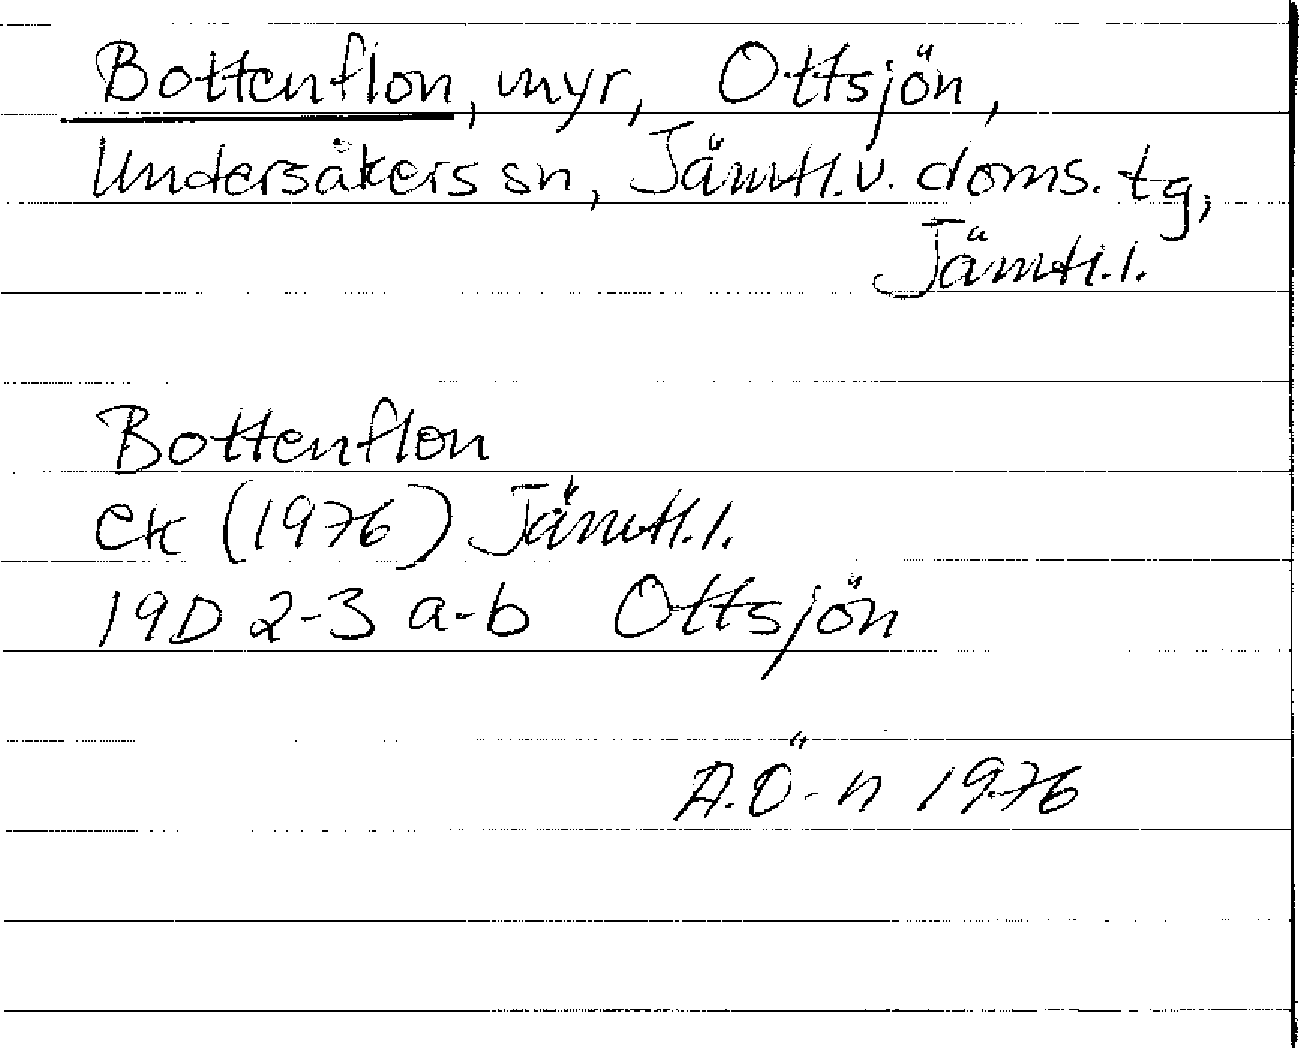 Bottenflon, myr, Ottsjön,
Undersåkers sn, Jämtl. v. doms. tg,
Jämtl. l.
Bottenflon
ek (1976) Jämtl. l.
19D 2-3 a-b Ottsjön
A.Ö-n 1976